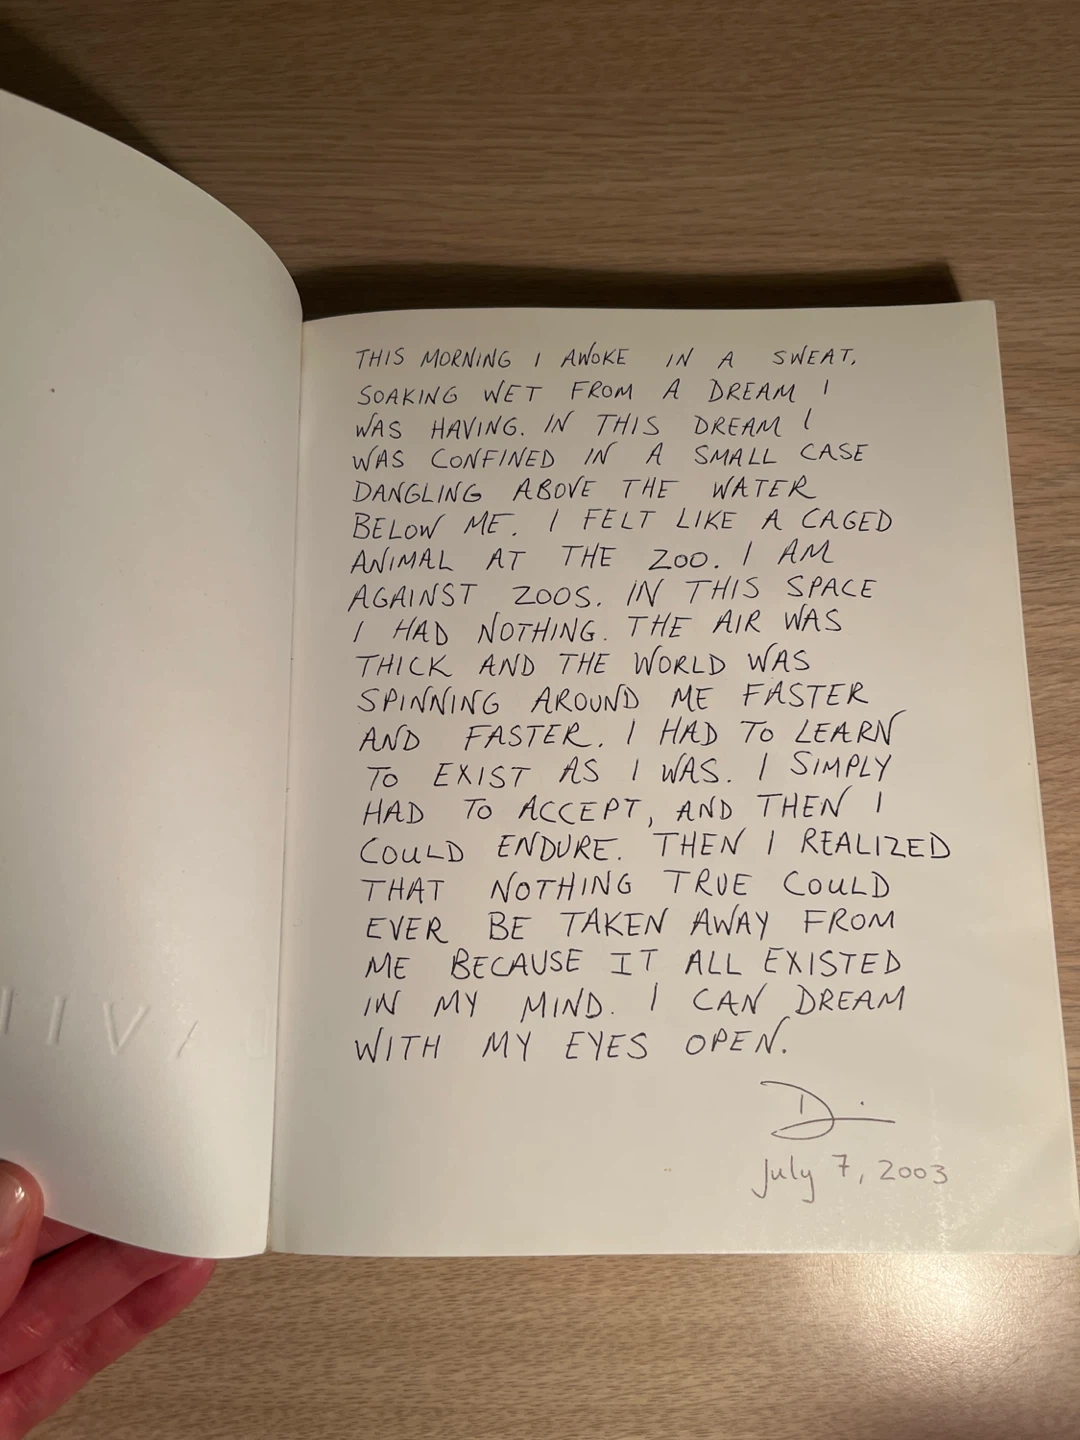 THIS MORNING I AWOKE IN A SWEAT,
SOAKING WET FROM A DREAM I
WAS HAVING. IN THIS DREAM I
WAS CONFINED IN A SMALL CASE
DANGLING ABOVE THE WATER
BELOW ME. I FELT LIKE A CAGED
ANIMAL AT THE ZOO. I AM
AGAINST ZOOS. IN THIS SPACE
I HAD NOTHING. THE AIR WAS
THICK AND THE WORLD WAS
SPINNING AROUND ME FASTER
AND FASTER. I HAD TO LEARN
TO EXIST AS I WAS. I SIMPLY
HAD TO ACCEPT, AND THEN I
COULD ENDURE. THEN I REALIZED
THAT NOTHING TRUE COULD
EVER BE TAKEN AWAY FROM
ME BECAUSE IT ALL EXISTED
IN MY MIND. I CAN DREAM
WITH MY EYES OPEN.
July 7, 2003